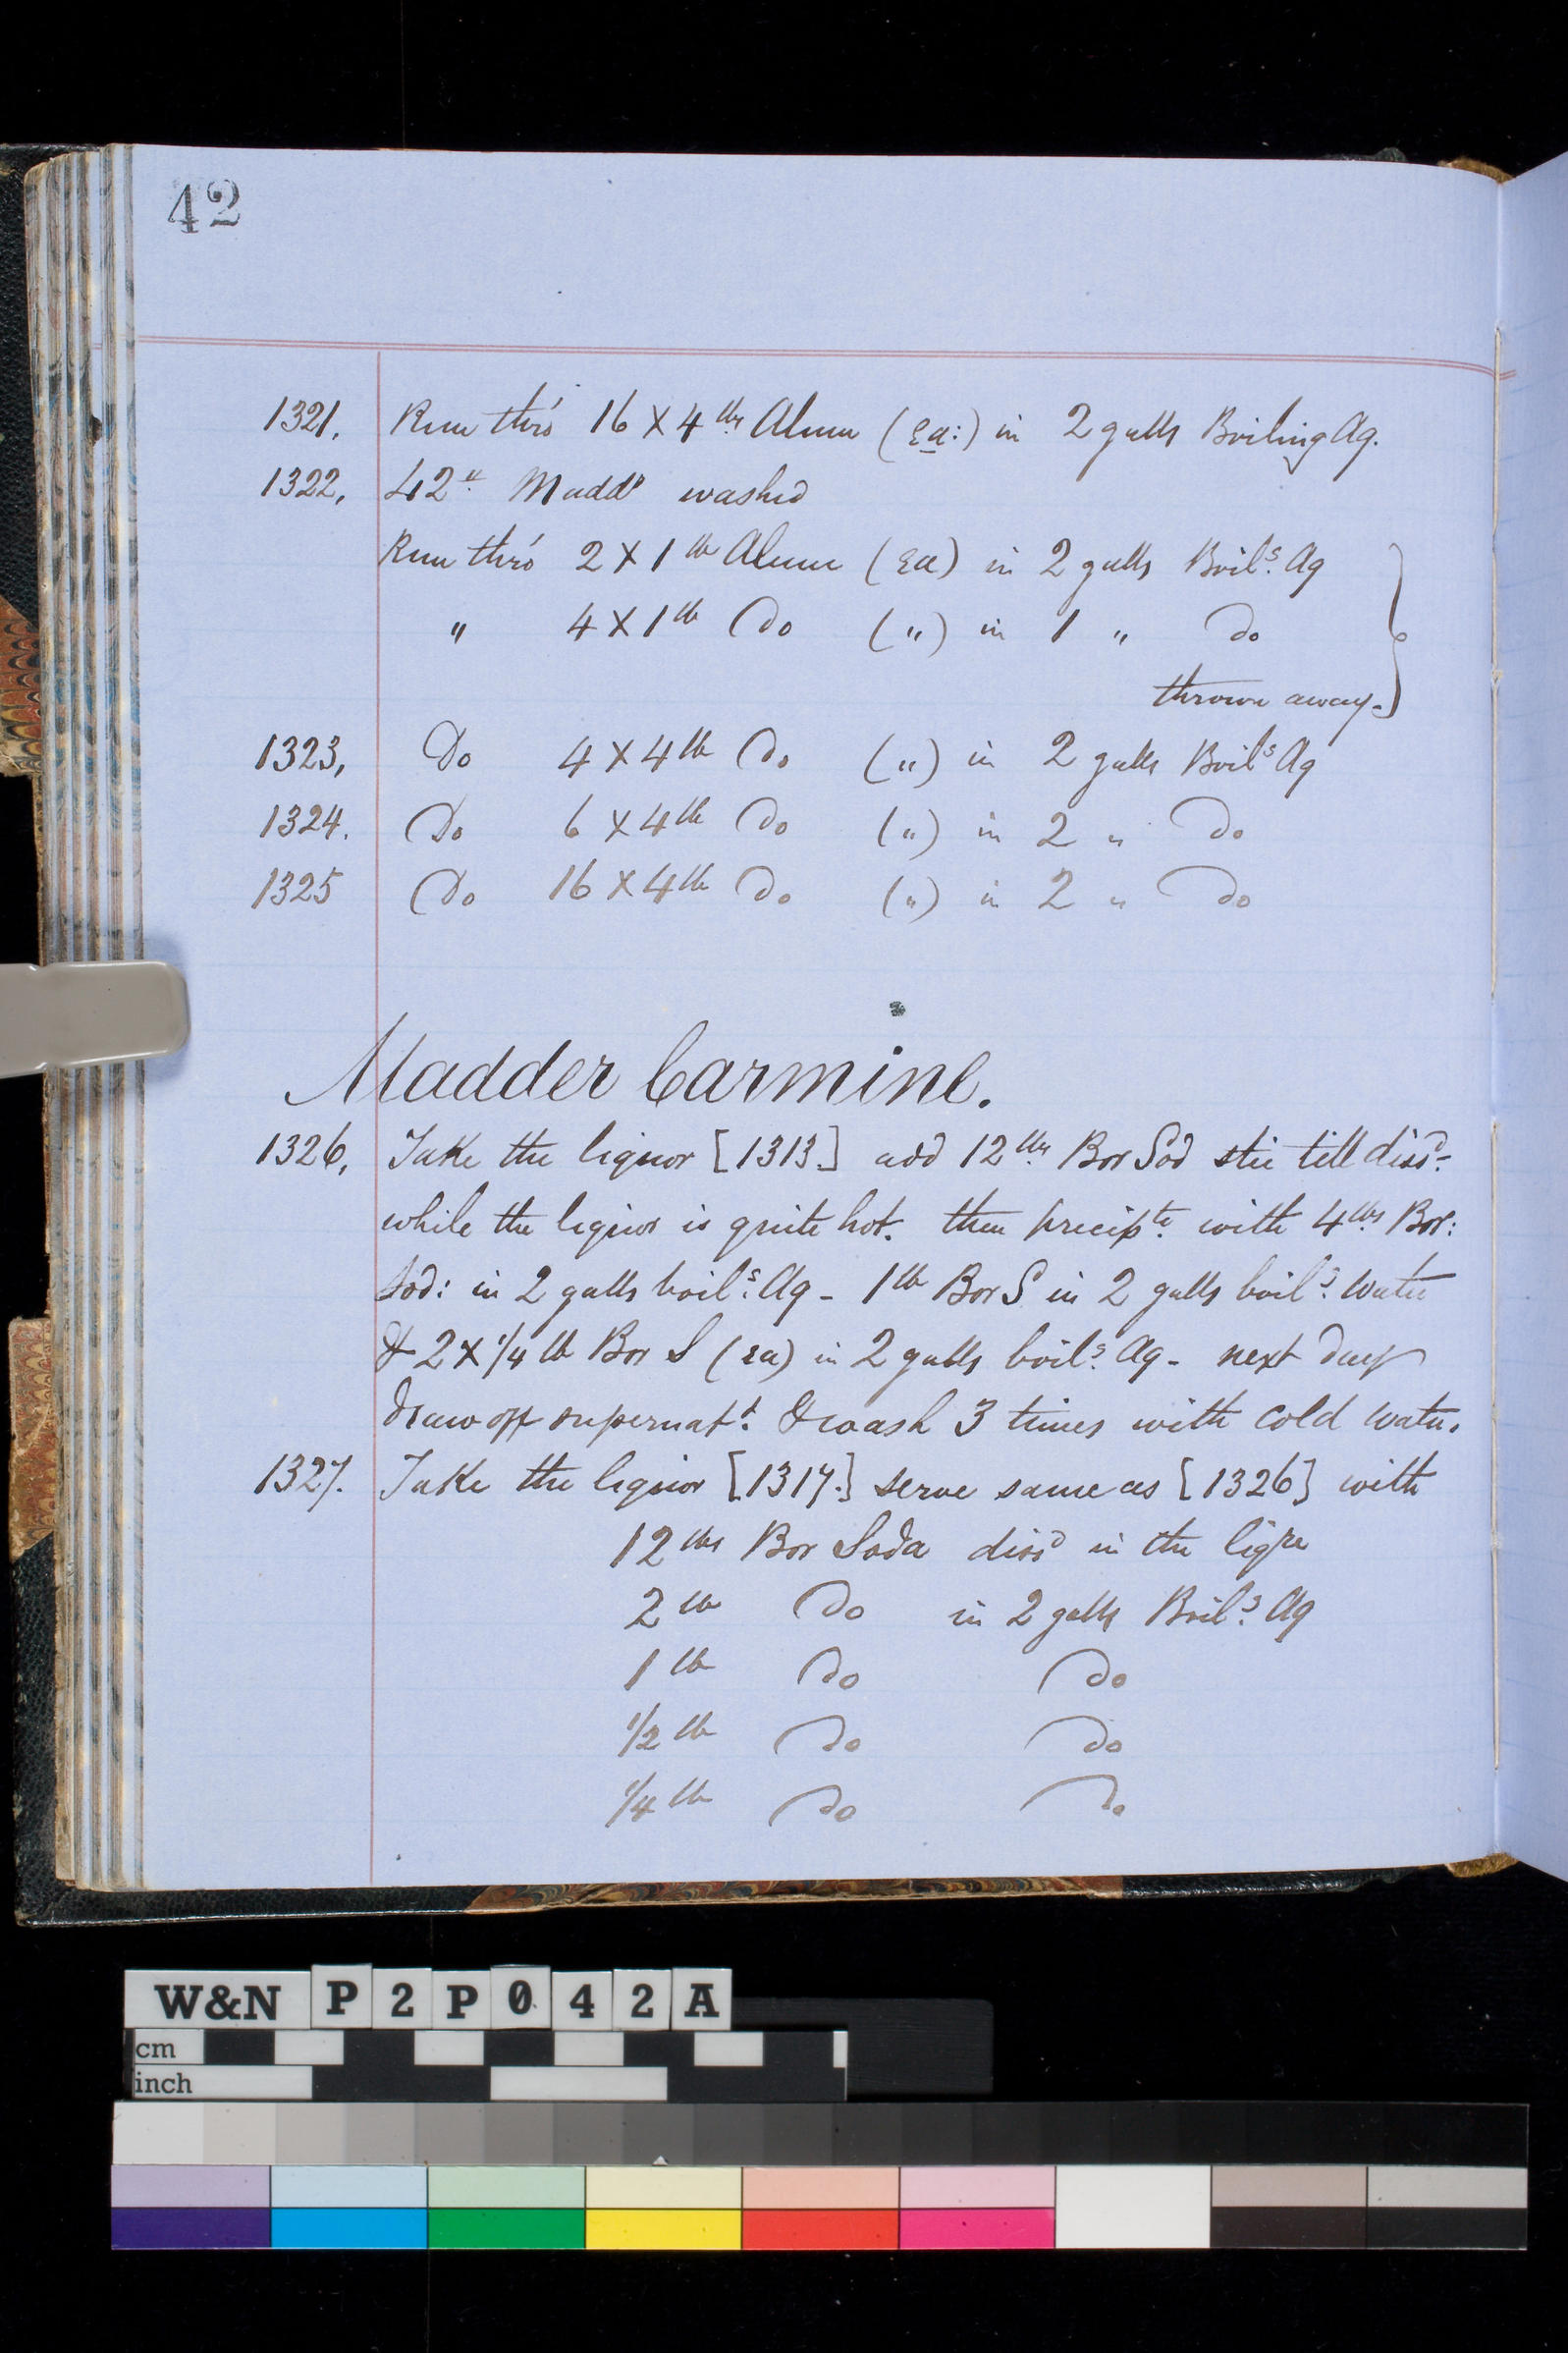 42
1321. Run thro' 16 X 4 lbs Alum (ea:) in 2 galls Boiling Aq.
1322, 42 lb Maddr washed
Run thro' 2 X 1 lb Alum (ea) in 2 galls Boilg. Aq
" 4 X 1 lb Do (") in 1 " Do
thrown away.
1323, Do 4 X 4 lb Do (") in 2 galls Boilg Aq
1324. Do 6 X 4 lb Do (") in 2 " Do
1325 Do 16 X 4 lb Do (") in 2 " Do
Madder Carmine.
1326, Take the liquor [1313.] add 12 lbs. Bor Sod stir till dissd.
while the liquor is quite hot. then precipte. with 4 lbs. Bor:
Sod: in 2 galls boilg. Aq - 1 lb Bor S in 2 galls boilg. Water
& 2 X 1/4 lb Bor S (ea) in 2 galls boilg. Aq - next day
draw off supernatt. & wash 3 times with cold water.
1327. Take the liquor [1317.] serve same as [1326] with
12 lbs Bor Soda dissd in the liqre
2 lb Do in 2 galls Boilg. Aq
1 lb Do Do
1/2 lb Do Do
1/4 lb Do Do
W&N P2P042A
cm
inch